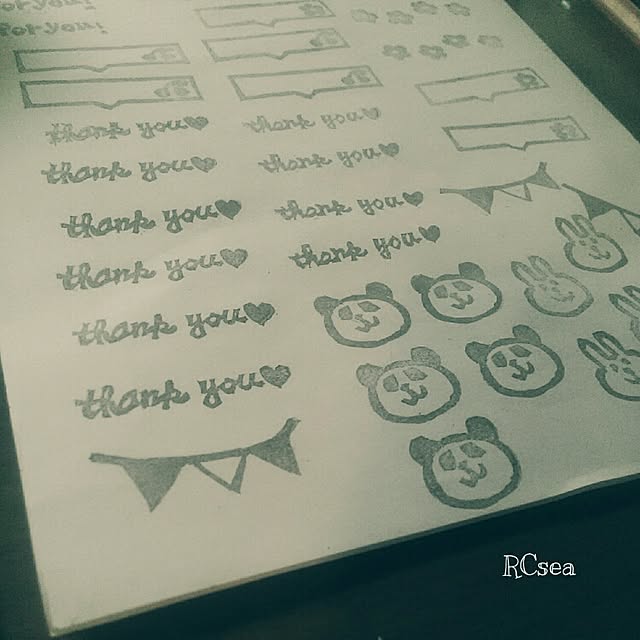 for you!
for you!
thank you♥ thank you♥
thank you♥ thank you♥
thank you♥ thank you♥
thank you♥ thank you♥
thank you♥
thank you♥
RCsea